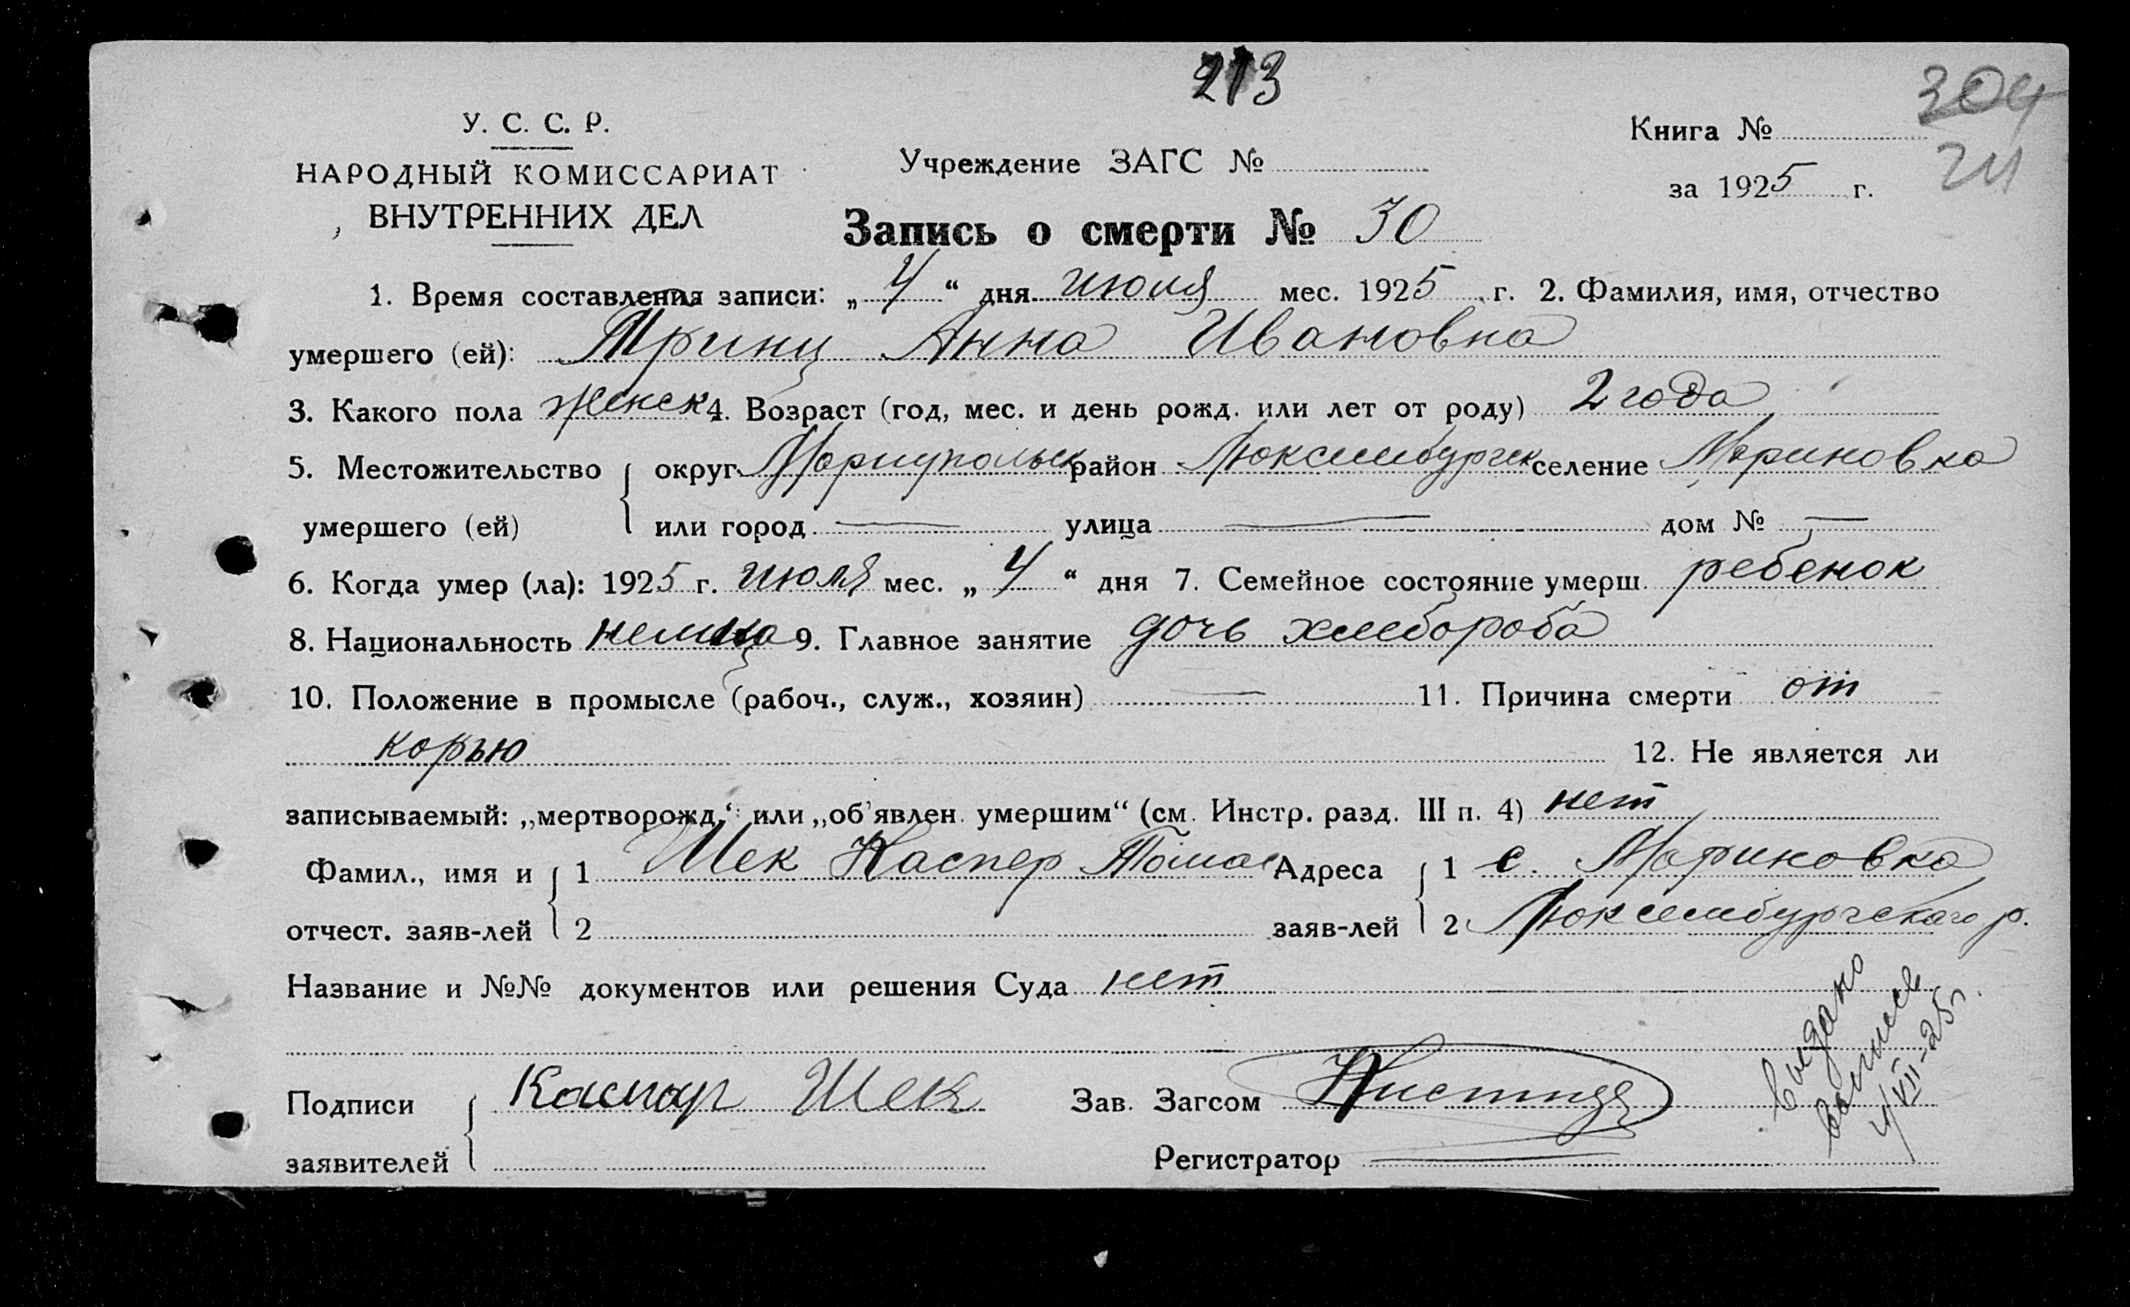 213
304
211
У. С. С. Р.
НАРОДНЫЙ КОМИССАРИАТ
ВНУТРЕННИХ ДЕЛ
Учреждение ЗАГС №
Книга №
за 1925 г.
Запись о смерти № 30
1. Время составления записи: „4“ дня июля мес. 1925 г. 2. Фамилия, имя, отчество
умершего (ей): Принц Анна Ивановна
3. Какого пола женск 4. Возраст (год, мес. и день рожд. или лет от роду) 2 года
5. Местожительство округ Мариупольск район Люксембургск селение Мариновка
умершего (ей) или город — улица — дом № —
6. Когда умер (ла): 1925 г. июля мес. „4“ дня 7. Семейное состояние умерш. ребенок
8. Национальность немка 9. Главное занятие дочь хлебороба
10. Положение в промысле (рабоч., служ., хозяин) — 11. Причина смерти от
корью 12. Не является ли
записываемый: „мертворожд.“ или „об'явлен. умершим“ (см. Инстр. разд. III п. 4) нет
Фамил., имя и 1 Шек Каспер Томас Адреса 1 с. Мариновка
отчест. заяв-лей 2 заяв-лей 2 Люксембургскаго р.
Название и №№ документов или решения Суда нет
Подписи Каспар Шек Зав. Загсом
заявителей Регистратор
Выдано
выпись
4/VII-25 г.